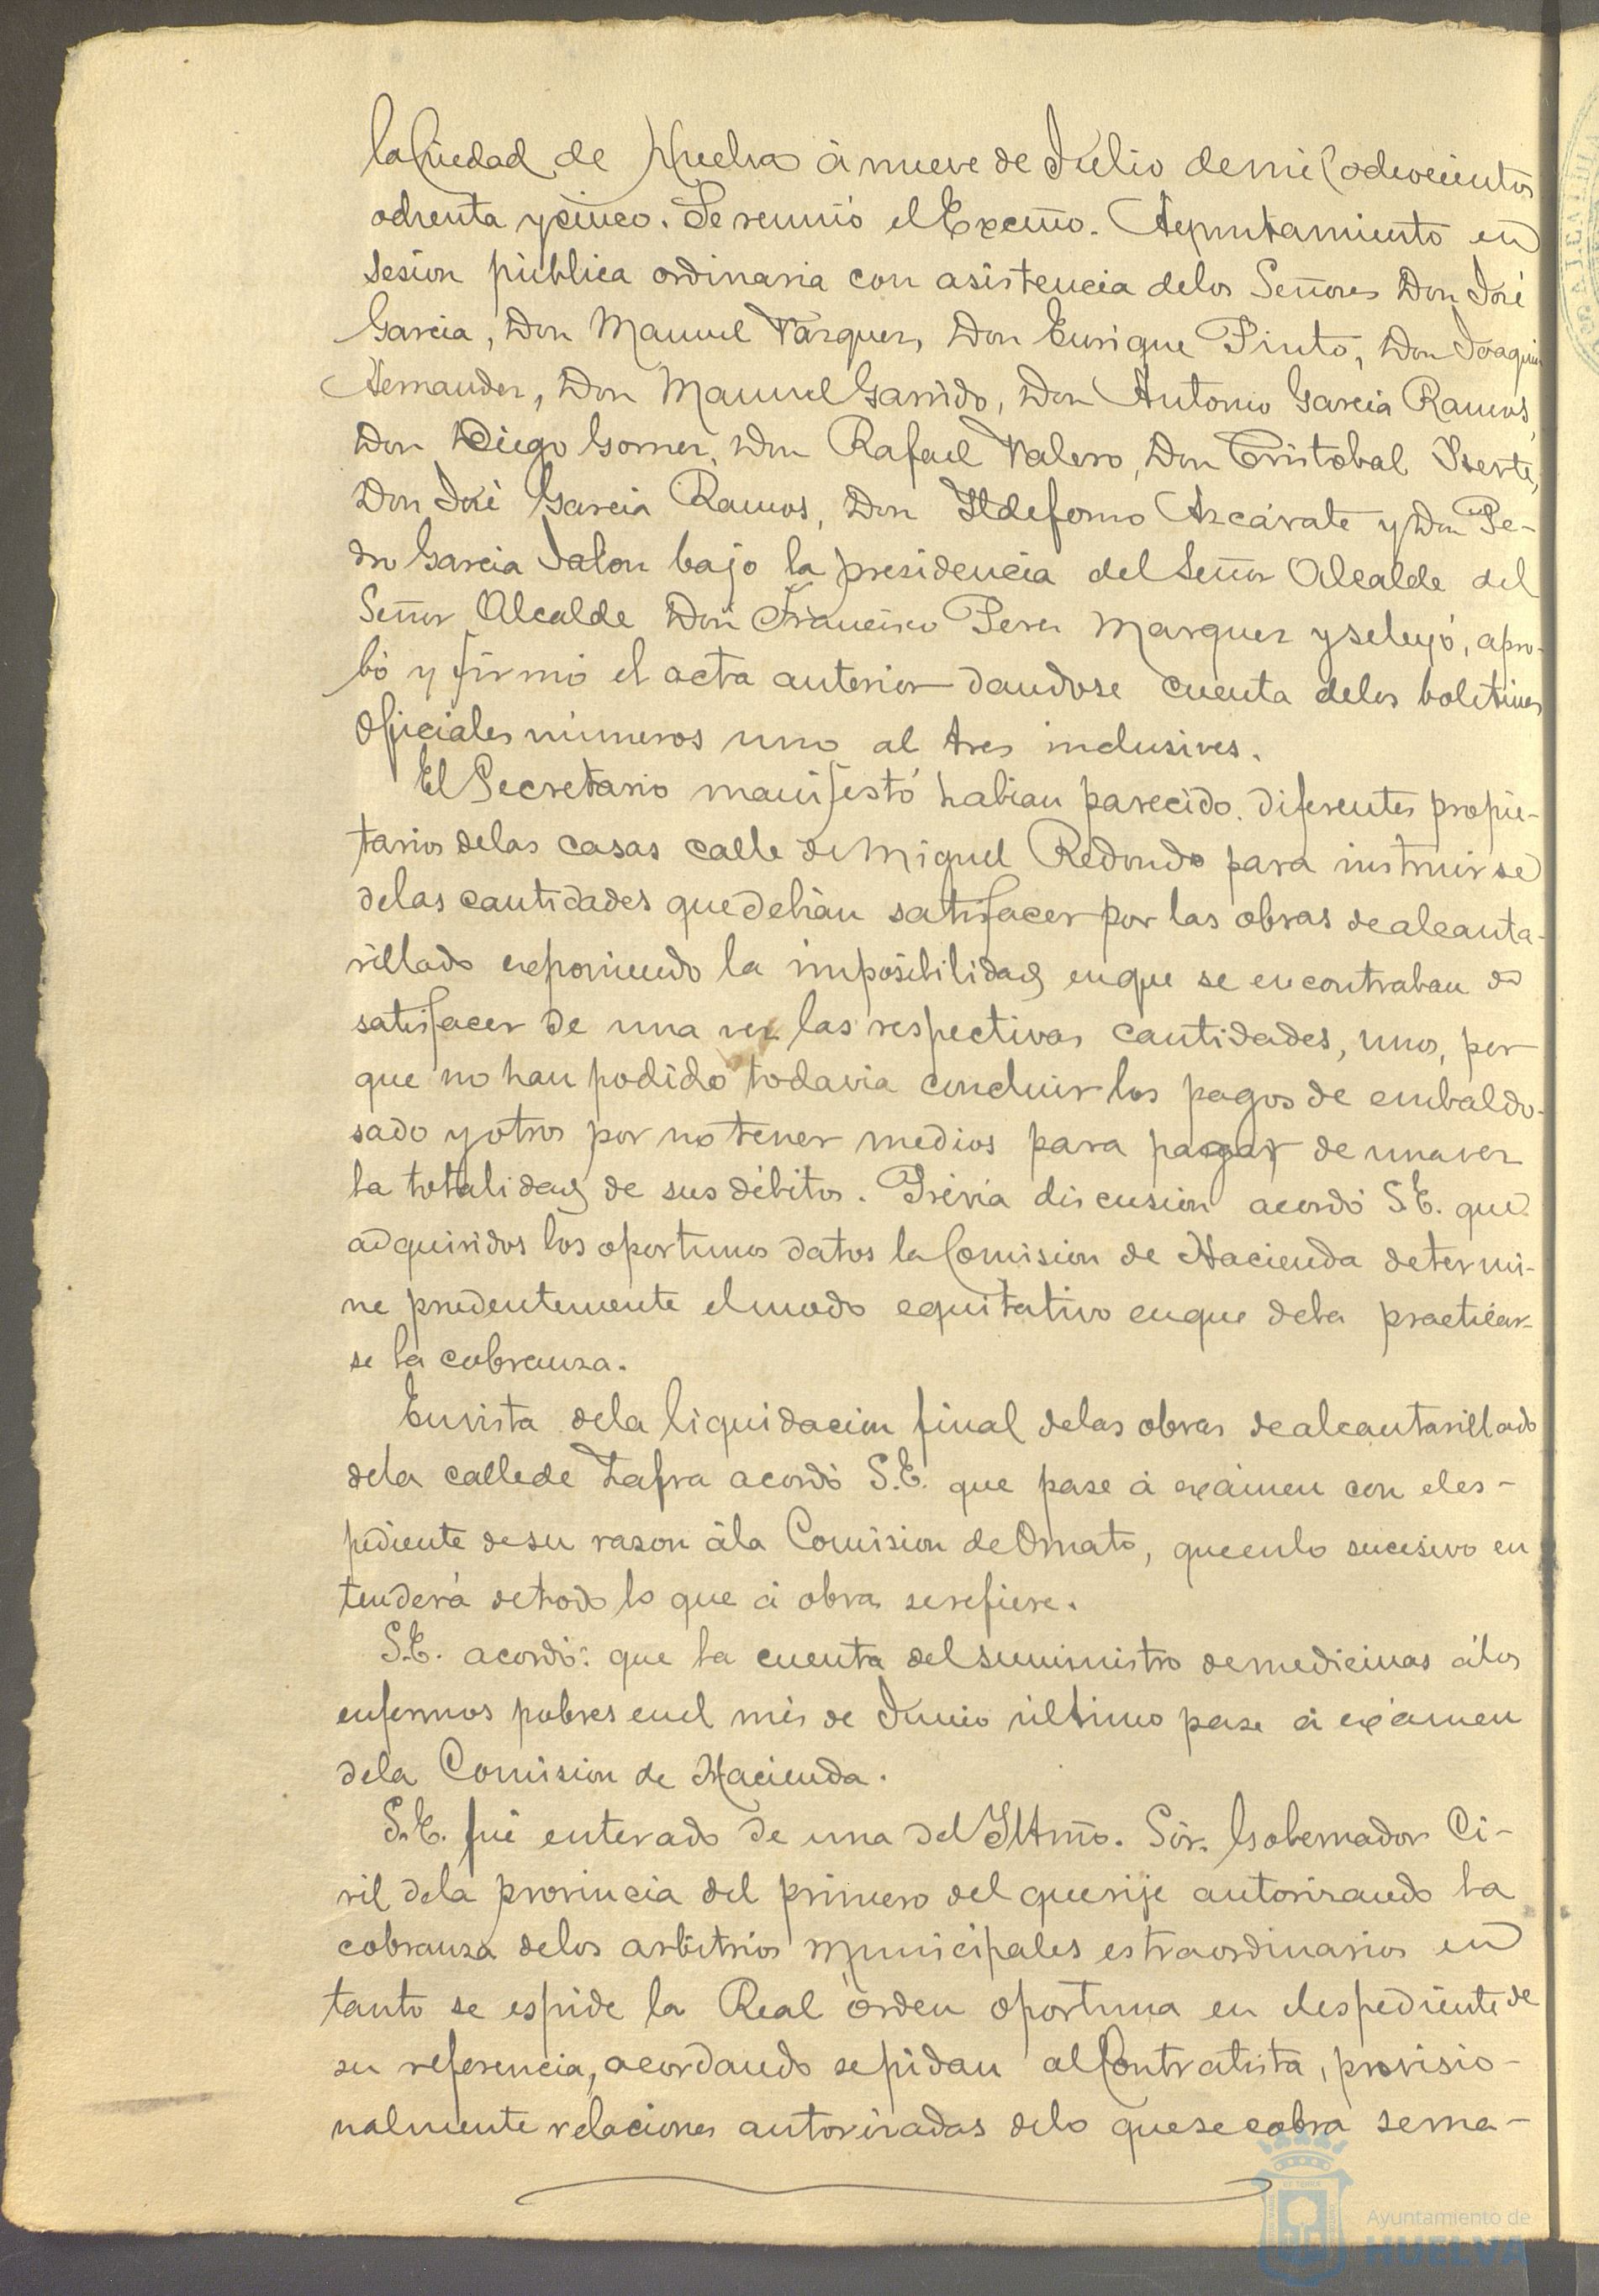 la Ciudad de Huelva á nueve de Julio de mil ochocientos
ochenta y cinco. Se reunió el Excmo. Ayuntamiento en
sesion pública ordinaria con asistencia de los Señores Don José
Garcia, Don Manuel Vazquez, Don Enrique Pinto, Don Joaquin
Hernandez, Don Manuel Garrido, Don Antonio Garcia Ramos,
Don Diego Gomez, Don Rafael Valero, Don Cristobal
Don José Garcia Ramos, Don Ildefonso Azcárate y Don Pe-
dro Garcia Jalon bajo la presidencia del Señor Alcalde del
Señor Alcalde Don Francisco Perez Marquez y se leyó, apro-
bó y firmó el acta anterior dandose cuenta de los boletines
Oficiales números uno al tres inclusives.
El Secretario manifestó habian parecido diferentes propie-
tarios de las casas calle de Miguel Redondo para instruirse
de las cantidades que debian satisfacer por las obras de alcanta-
rillado exponiendo la imposibilidad en que se encontraban de
satisfacer de una vez las respectivas cantidades, unos, por
que no han podido todavia concluir los pagos de embaldo-
sado y otros por no tener medios para pagar de una vez
la totalidad de sus débitos. Prévia discusion acordó S.E. que
adquiridos los oportunos datos la Comision de Hacienda determi-
ne prudentemente el modo equitativo en que deba practicar-
se la cobranza.
En vista de la liquidacion final de las obras de alcantarillado
de la calle de Zafra acordó S.E. que pase á exámen con el es-
pediente de su razon á la Comision de Ornato, que en lo sucesivo en
tenderá de todo lo que á obras se refiere.
S.E. acordó: que la cuenta del suministro de medicinas á los
enfermos pobres en el més de Junio último pase á exámen
de la Comision de Hacienda.
S.E. fué enterado de una del Iltmo. Sór. Gobernador Ci-
vil de la provincia del primero del que rije autorizando la
cobranza de los arbitrios municipales estraordinarios en
tanto se espide la Real órden oportuna en el espediente de
su referencia, acordando se pidan al Contratista, provisio-
nalmente relaciones autorizadas de lo que se cobra sema-
Ayuntamiento de
HUELVA